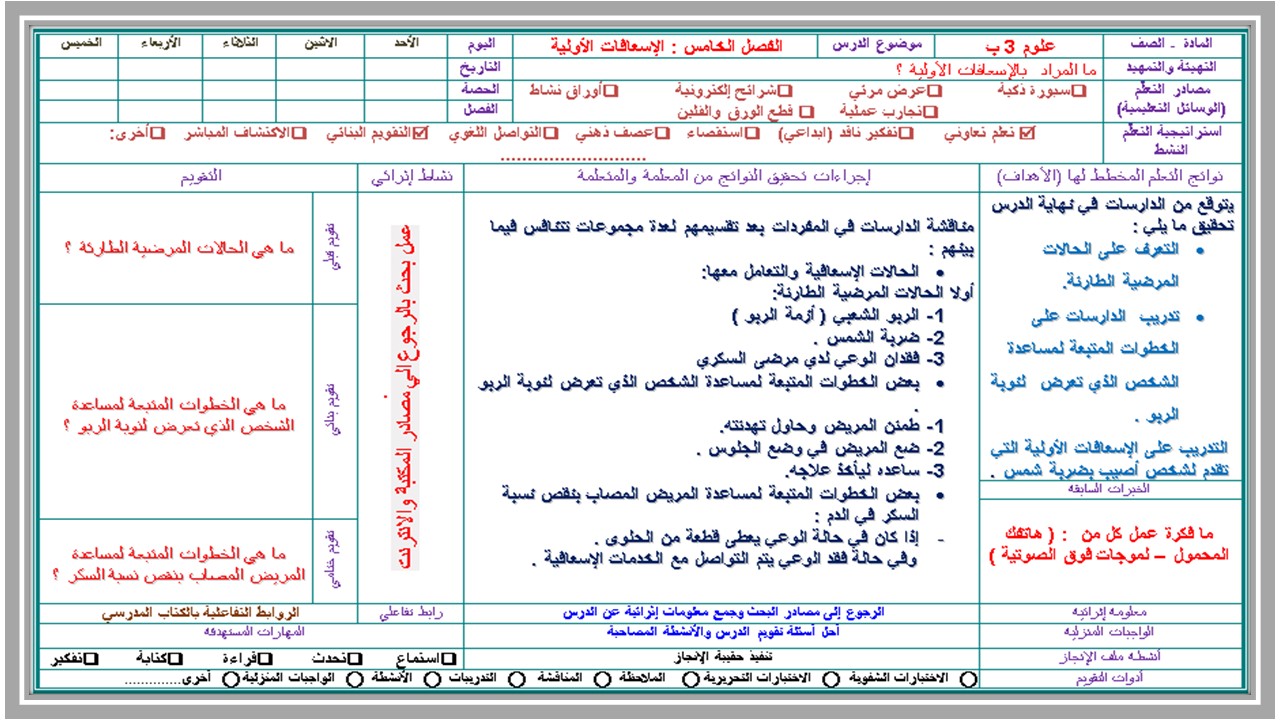 المادة - الصف
علوم 3 ب
موضوع الدرس
الفصل الخامس : الإسعافات الأولية
اليوم
الأحد
الاثنين
الثلاثاء
الأربعاء
الخميس
التهيئة والتمهيد
ما المراد بالإسعافات الأولية ؟
التاريخ
مصادر التعلّم
(الوسائل التعليمية)
سبورة ذكية
عرض مرئي
شرائح إلكترونية
أوراق نشاط
تجارب عملية
قطع الورق والفلين
الحصة
الفصل
استراتيجية التعلّم
النشط
تعلم تعاوني
تفكير ناقد (ابداعي)
استقصاء
عصف ذهني
التواصل اللغوي
التقويم البنائي
الاكتشاف المباشر
أخرى:
...........................
نواتج التعلم المخطط لها (الأهداف)
إجراءات تحقيق النواتج من المعلمة والمتعلمة
نشاط إثرائي
التقويم
يتوقع من الدارسات في نهاية الدرس
تحقيق ما يلي :
• التعرف على الحالات
المرضية الطارئة.
• تدريب الدارسات على
الخطوات المتبعة لمساعدة
الشخص الذي تعرض لنوبة
الربو .
التدريب على الإسعافات الأولية التي
تقدم لشخص أصيب بضربة شمس .
الخبرات السابقه
ما فكرة عمل كل من : ( هاتفك
المحمول – لموجات فوق الصوتية )
مناقشة الدارسات في المفردات بعد تقسيمهم لعدة مجموعات تتنافس فيما
بينهم :
• الحالات الإسعافية والتعامل معها:
أولا الحالات المرضية الطارئة:
1- الربو الشعبي ( أزمة الربو )
2- ضربة الشمس .
3- فقدان الوعي لدي مرضى السكري
• بعض الخطوات المتبعة لمساعدة الشخص الذي تعرض لنوبة الربو
.
1- طمئن المريض وحاول تهدئته.
2- ضع المريض في وضع الجلوس .
3- ساعده ليأخذ علاجه.
• بعض الخطوات المتبعة لمساعدة المريض المصاب بنقص نسبة
السكر في الدم :
- إذا كان في حالة الوعي يعطى قطعة من الحلوى .
وفي حالة فقد الوعي يتم التواصل مع الخدمات الإسعافية .
عمل بحث بالرجوع إلي مصادر المكتبة والانترنت
تقويم قبلي
ما هي الحالات المرضية الطارئة ؟
تقويم بنائي
ما هي الخطوات المتبعة لمساعدة
الشخص الذي تعرض لنوبة الربو ؟
تقويم ختامي
ما هي الخطوات المتبعة لمساعدة
المريض المصاب بنقص نسبة السكر ؟
معلومه إثرائيه
الرجوع إلى مصادر البحث وجمع معلومات إثرائية عن الدرس
رابط تفاعلي
الروابط التفاعلية بالكتاب المدرسي
الواجبات المنزليه
أحل أسئلة تقويم الدرس والأنشطة المصاحبة
المهارات المستهدفه
أنشطه ملف الإنجاز
تنفيذ حقيبة الإنجاز
استماع
تحدث
قراءة
كتابة
تفكير
أدوات التقويم
الاختبارات الشفوية
الاختبارات التحريرية
الملاحظة
المناقشة
التدريبات
الأنشطة
الواجبات المنزلية
أخرى..............